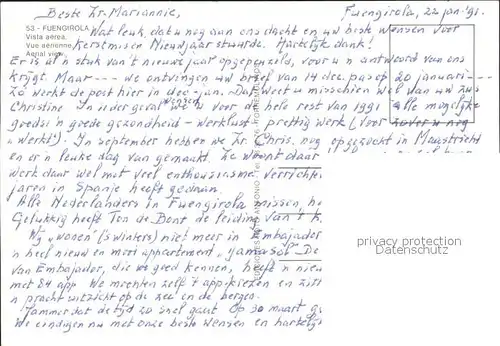 Beste Zr. Mariannie, Fuengirola, 22 jan. '91.
53 - FUENGIROLA
Vista aérea.
Vue aérienne.
Aerial view.
Wat leuk, dat u nog aan ons dacht en uw beste wensen voor
Kerstmis en Nieuwjaar stuurde. Hartelijk dank!
Er is al 'n stuk van 't nieuwe jaar opgepeuzeld, voor u 'n antwoord van ons
krijgt. Maar --- we ontvingen uw brief van 14 dec. pas op 20 januari ----
Zo werkt de post hier in dec.-jan. Dat weet u misschien wel van uw zus
Christine. In ieder geval wensen we u voor de hele rest van 1991 alle mogelijke
goeds: 'n goede gezondheid - werklust - prettig werk (voor zover u nog
werkt). In september hebben we Zr. Chris. nog opgezocht in Maastricht
en er 'n leuke dag van gemaakt. Ze woont daar
werk daar wel met veel enthousiasme verrichten
jaren in Spanje heeft gedaan.
Alle Nederlanders in Fuengirola missen,
Gelukkig heeft Ton de Bont de leiding van
Wij "wonen" ('s winters) niet meer in Embajador
'n heel nieuw en mooi appartement, "Jamasol"
van Embajador, die we goed kennen, heeft
met 84 app. We mochten zelf 'n app. kiezen en
'n pracht uitzicht op de zee en de bergen.
Jammer dat de tijd zo snel gaat. Op 30 maart
We eindigen nu met onze beste wensen en
privacy protection
Datenschutz